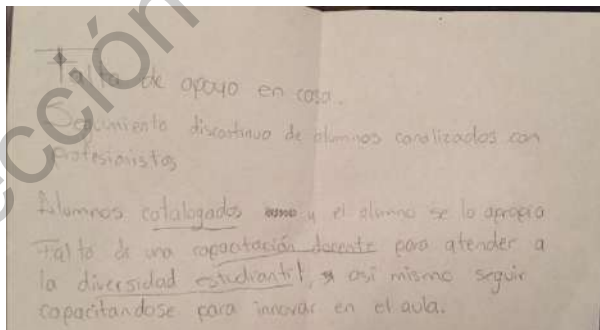 Falta de apoyo en casa.
Seguimiento discontinuo de alumnos canalizados con
profesionistas
Alumnos catalogados y el alumno se lo apropia
Falta de una capacitación docente para atender a
la diversidad estudiantil, así mismo seguir
capacitandose para innovar en el aula.
cción